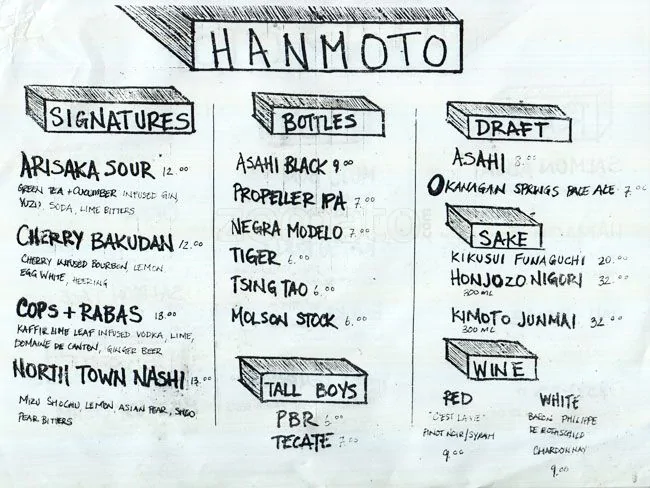 HANMOTO
SIGNATURES
ARISAKA SOUR 12.00
GREEN TEA + CUCUMBER INFUSED GIN,
YUZU, SODA, LIME BITTERS
CHERRY BAKUDAN 12.00
CHERRY INFUSED BOURBON, LEMON
EGG WHITE, HEERING
COPS + RABAS 13.00
KAFFIR LIME LEAF INFUSED VODKA, LIME,
DOMAINE DE CANTON, GINGER BEER
NORTH TOWN NASHI 13.00
MIZU SHOCHU, LEMON, ASIAN PEAR, SHISO
PEAR BITTERS
BOTTLES
ASAHI BLACK 9.00
PROPELLER IPA 7.00
NEGRA MODELO 7.00
TIGER 6.00
TSING TAO 6.00
MOLSON STOCK 6.00
TALL BOYS
PBR 6.00
TECATE 7.00
DRAFT
ASAHI 8.00
OKANAGAN SPRINGS PALE ALE 7.00
SAKE
KIKUSUI FUNAGUCHI 20.00
HONJOZO NIGORI 32.00
300 ML
KIMOTO JUNMAI 32.00
300 ML
WINE
RED
"C'EST LA VIE"
PINOT NOIR/SYRAH
9.00
WHITE
BARON PHILIPPE
DE ROTHSCHILD
CHARDONNAY
9.00